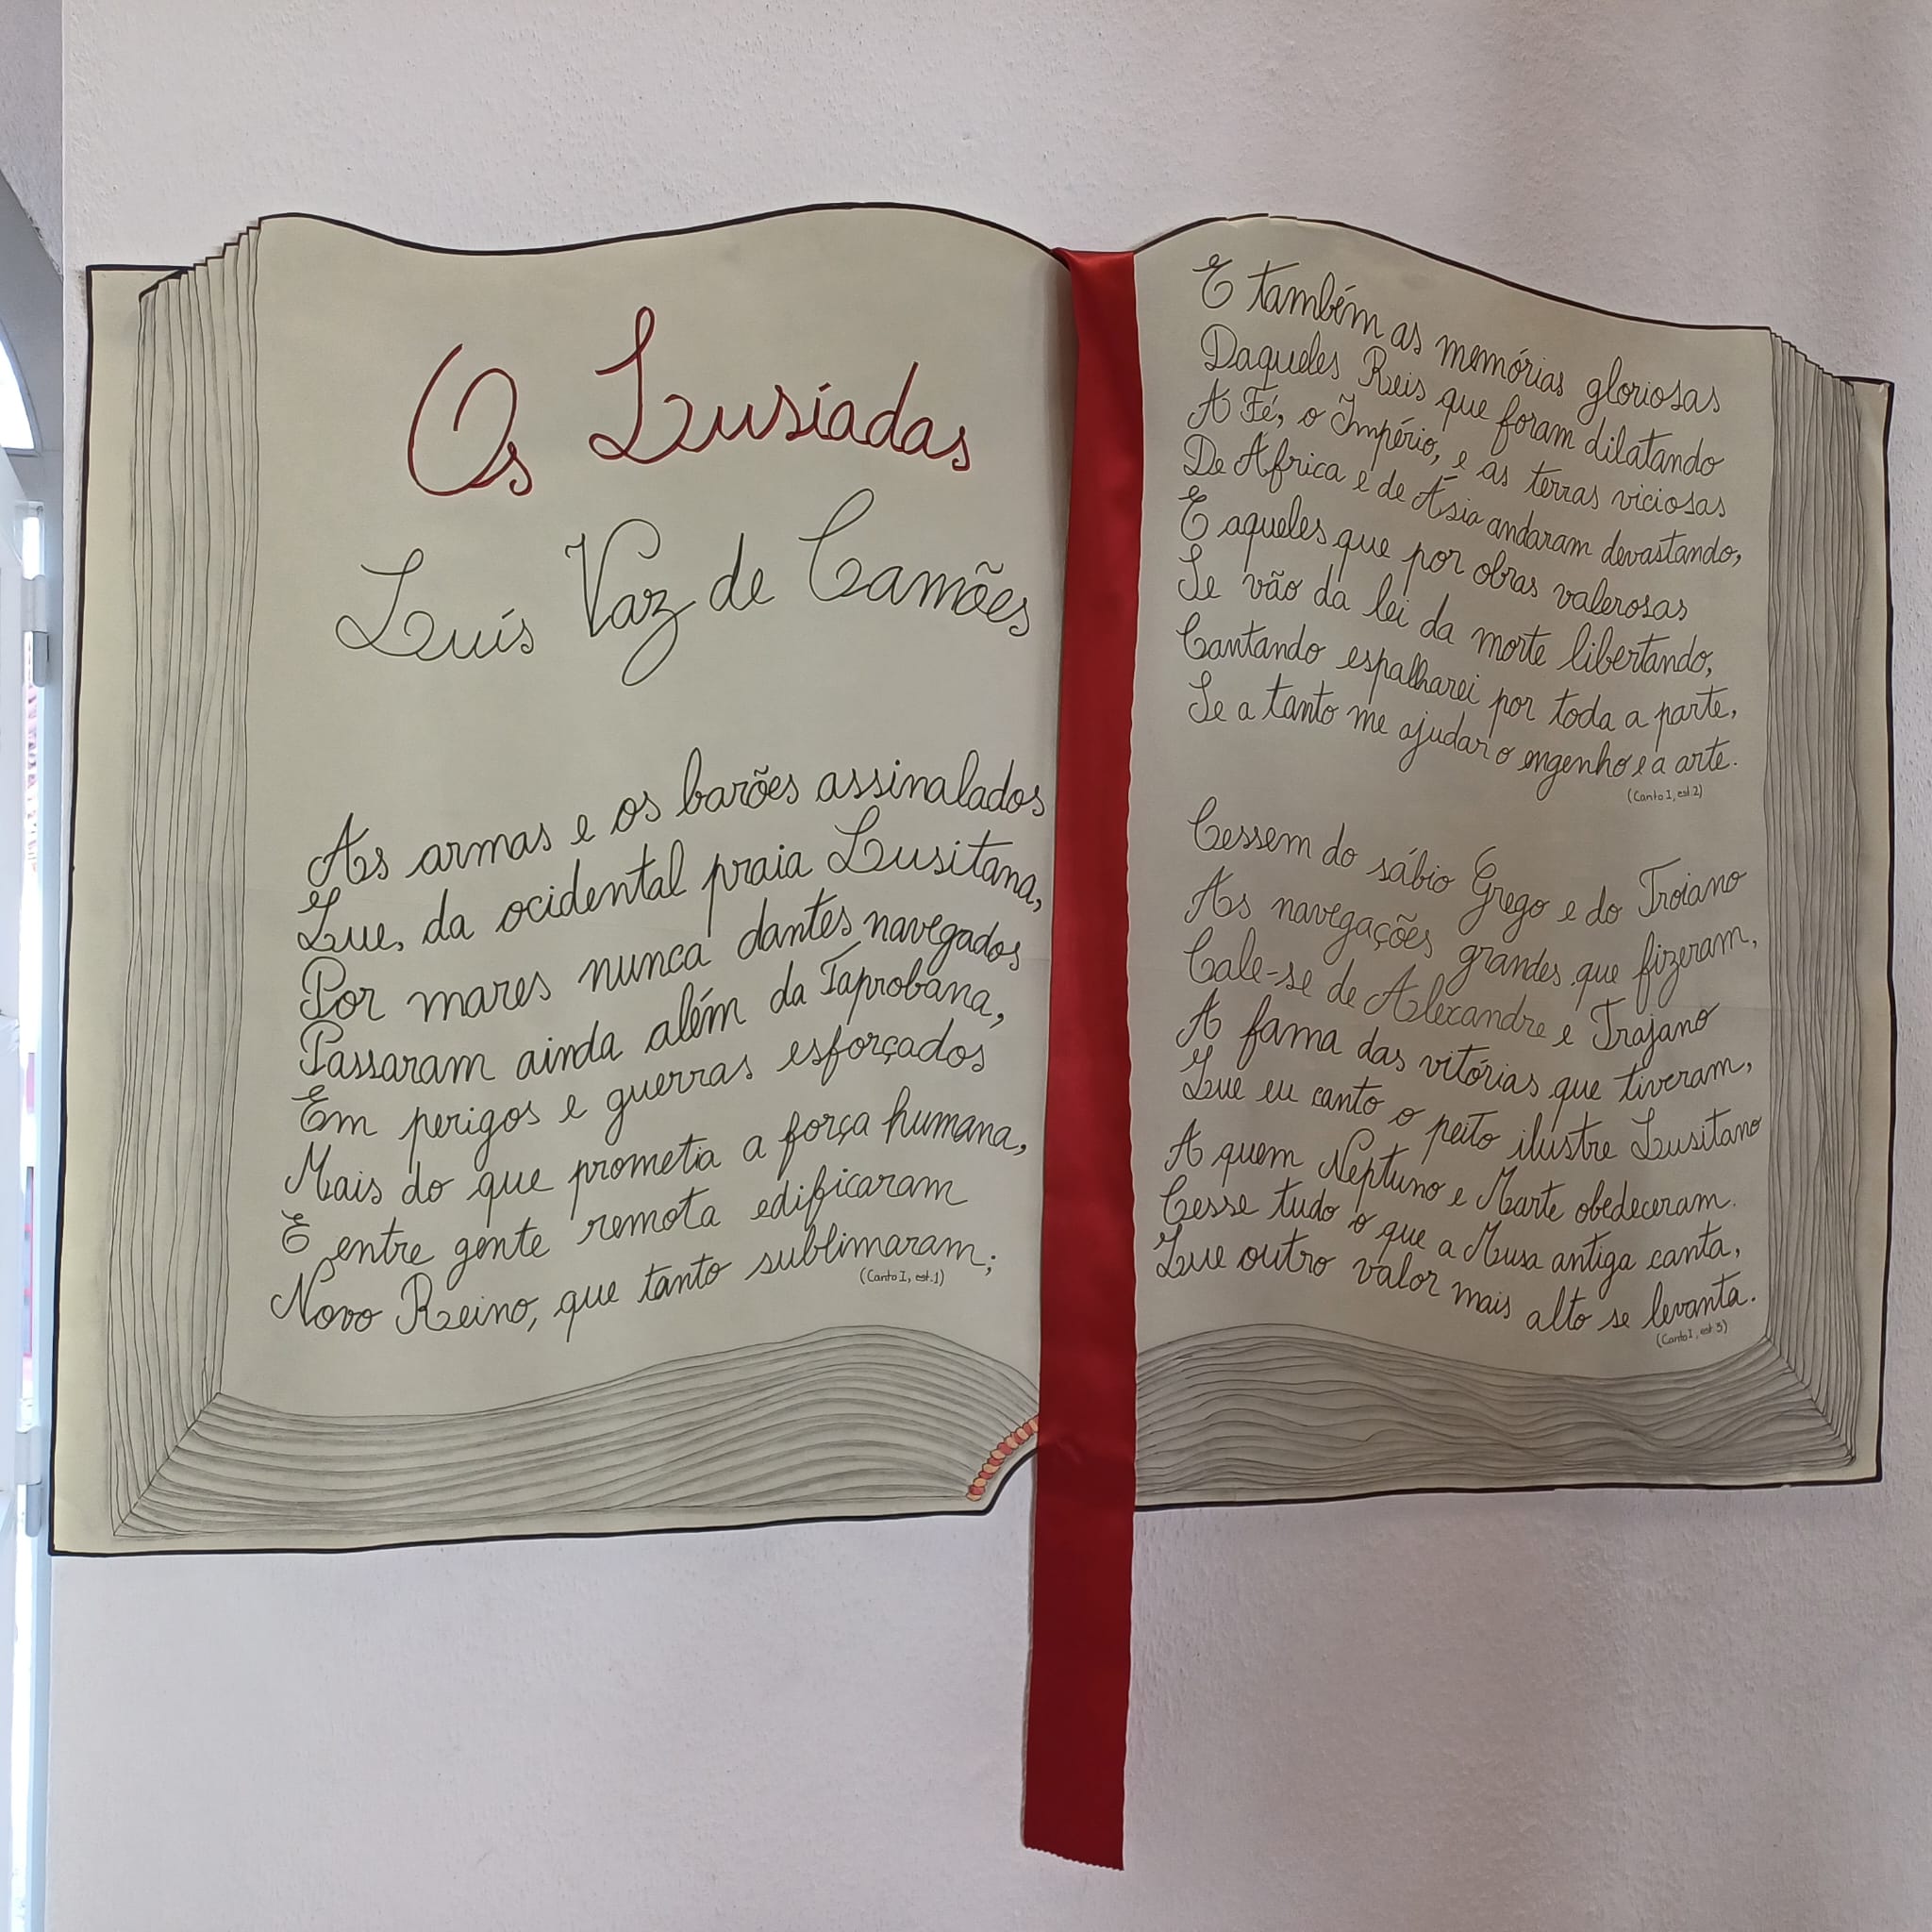 Os Lusíadas
Luís Vaz de Camões
As armas e os barões assinalados
Que, da ocidental praia Lusitana,
Por mares nunca dantes navegados
Passaram ainda além da Taprobana,
Em perigos e guerras esforçados
Mais do que prometia a força humana,
E entre gente remota edificaram
Novo Reino, que tanto sublimaram;
(Canto I, est.1)
E também as memórias gloriosas
Daqueles Reis que foram dilatando
A Fé, o Império, e as terras viciosas
De África e de Ásia andaram devastando,
E aqueles que por obras valerosas
Se vão da lei da morte libertando,
Cantando espalharei por toda a parte,
Se a tanto me ajudar o engenho e a arte.
(Canto I, est.2)
Cessem do sábio Grego e do Troiano
As navegações grandes que fizeram,
Cale-se de Alexandre e Trajano
A fama das vitórias que tiveram,
Que eu canto o peito ilustre Lusitano
A quem Neptuno e Marte obedeceram.
Cesse tudo o que a Musa antiga canta,
Que outro valor mais alto se levanta.
(Canto I, est.3)